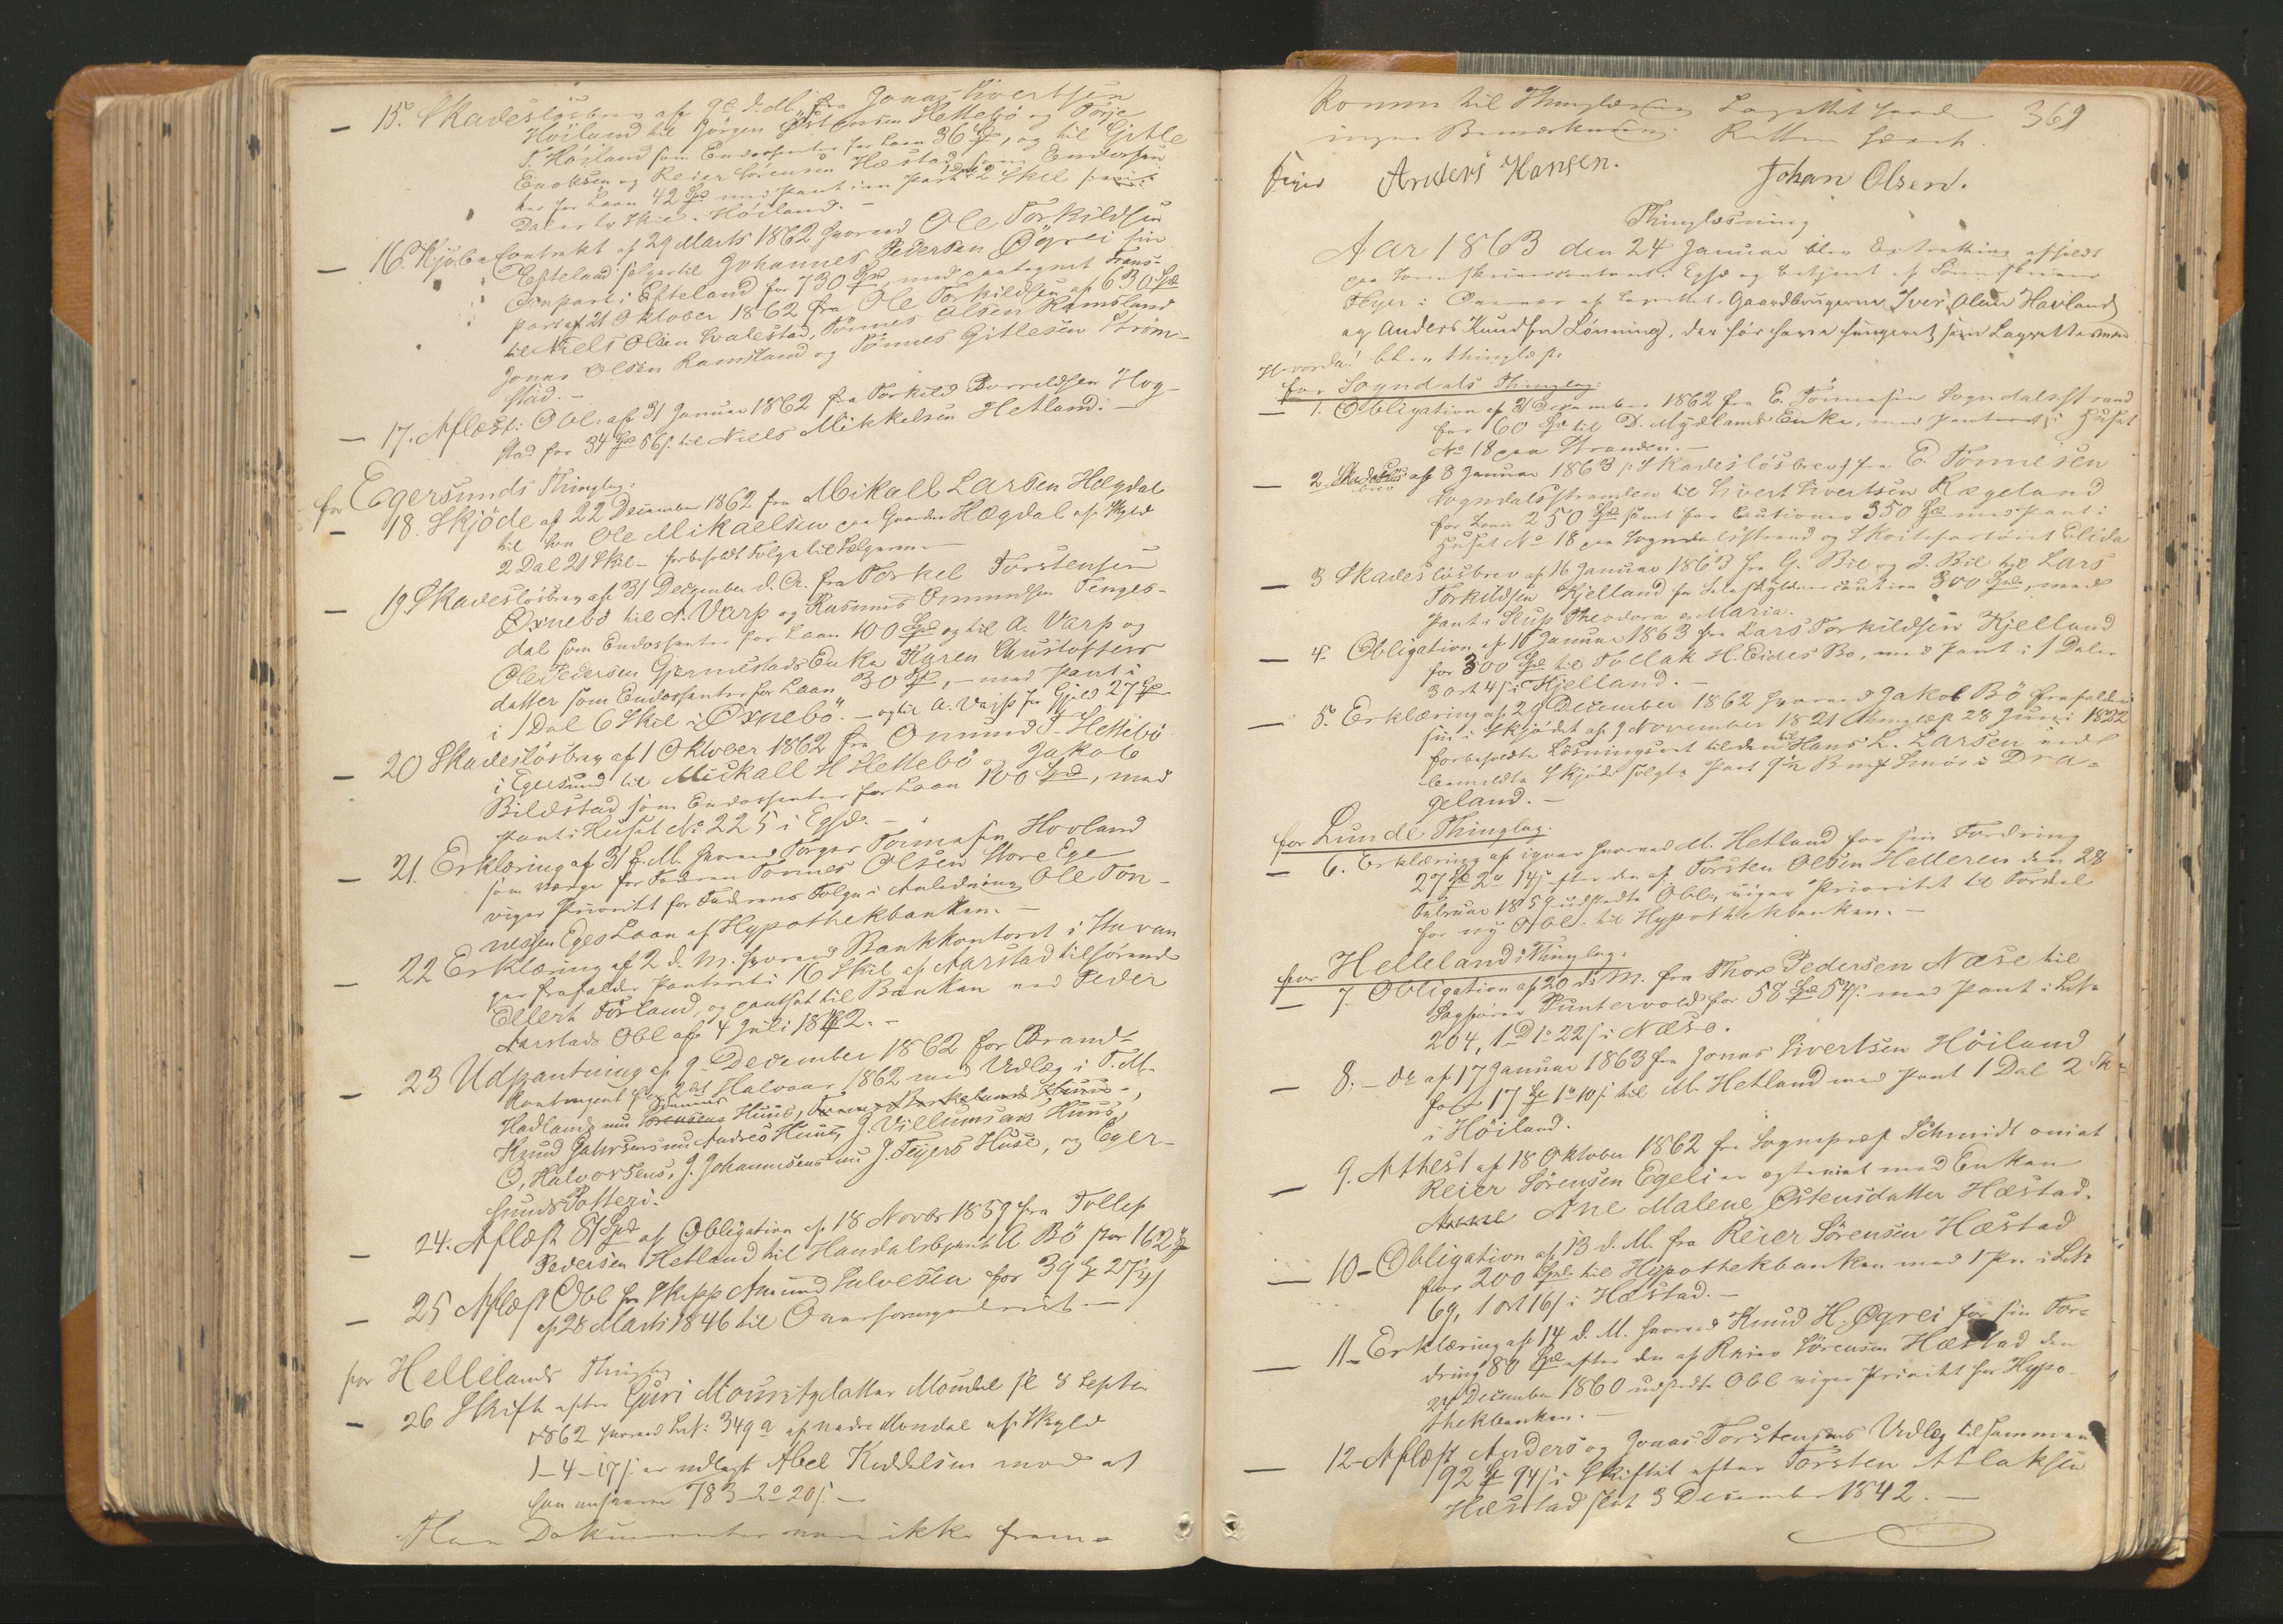 15. Skadesløsbrev af 9de d. M. fra Jonas Sivertsen
Høiland til Jørgen Østensen Hettebø og Torje
T. Høiland som Endossenter for Laan 36 Spd, og til Gitle
Enoksen og Reier Sørensen Hæstad som Endossen
ter for Laan 42 Spd med Pant i en Part 1 Dal 2 Skil
Høiland. –
16. Kjøbekontrakt af 29 Marts 1862 hvorved Ole Torkildsen
Efteland sælger til Johannes Pedersen Øgrei sin
Enpart i Efteland for 730 Spd, med paategnet Trans-
port af 21 Oktober 1862 fra Ole Torkildsen af 630 Spd
til Niels Olsen Svalestad, Tønnes Olsen Ramsland
Jonas Olsen Ramsland og Tønnes Gitlesen Strøm-
stad. –
17. Aflæst: Obl. af 31 Januar 1862 fra Torkild Hog-
stad for 34 Spd 56 s. til Niels Mikkelsen Hetland. –
for Egersunds Thinglag:
18. Skjøde af 22 December 1862 fra Mikall Larsen Hægdal
til Søn Ole Mikaelsen paa Gaarden Hægdal af Skyld
2 Dal 21 Skil – forbeholdt Folge til Sælgeren. –
19 Skadesløsbrev af 31 December d. A. fra Torkel Torstensen
Øxnebø til A. Varp og Rasmus Omundsen Tenges-
dal som Endossenter for Laan 100 Spd og til A. Varp og
Ole Pedersen Gjermestads Enke Karen Christoffers
datter som Endossenter for Laan 30 Spd, – med Pant i
i 1 Dal 6 Skil i Øxnebø. – og til A. Varp for Gjeld 27 Spd
20 Skadesløsbrev af 1 Oktober 1862 fra Omund T. Hettebø
i Egersund til Mickall H Hettebø og Jakob
Bildstad som Endossenter for Laan 100 Spd, med
Pant i Huset No 225 i Egsd. –
21. Erklæring af 31 f. M. hvorved Torger Tormosen Hovland
som Værge for Faderen Tønnes Olsen Store Ege
viger Prioritet for Faderens Folge i Anledning Ole Tøn-
nessen Eges Laan af Hypothekbanken. –
22 Erklæring af 2 d. M. hvorved Bankkontoret i Stavan
ger frafalder Panteret i 16 Skil af Aarstad tilhørende
Ellert Førland, og pantsat til Banken ved Peder
Aarstads Obl af 4 Juli 1842. –
23 Udpantning af 9 December 1862 for Brand-
kontingent for 2det Halvaar 1862 med Udlæg i T. M.
Hadlands nu Huus,
Knud nu Andreo Huus, J. Villumsens Huus,
O. Halvorsens, J. Johannesens nu J. Feyers Huse, og Eger-
sunds Potteri.
24. Aflæst 81 Spd af Obligation af 18 Novbr 1859 fra Tollef
Pedersen Hetland til Handelsbjent A Bø stor 162 Spd
25 Aflæst Obl fra Skipp Amund Salvesen for 39 Spd
af 28 Marts 1846 til Overformynderiet –
for Hellelands Thinglag
26 Skifte efter Guri Mouritzdatter Mondal 8 Septbr
1862 hvorved Lnr: 349 a af nedre Mondal af Skyld
1–4–17 s. er udlagt Abel Keddelsen mod at
han ansvarer 783–2–20 s. –
Flere Dokumenter var ikke frem-
komne til Thinglæsning. Lagrettet havde 369
ingen Bemærkning. Retten hævet.
Feyer Anders Hansen. Johan Olsen.
Thinglæsning
Aar 1863 den 24 Januar blev Extrathing afholdt
paa Sorenskriverkontoret i Egsd og betjent af Sorenskriver
Feyer i Overvær af Lagrettet. Gaardbrugerne Iver Olsen Havland
og Anders Knudsen Lønning, der før have fungeret som Lagrettesmænd
Hvorda blev thinglæst
for Sogndals Thinglag:
1. Obligation af 31 December 1862 fra E. Tønnesen Sogndalsstrand
for 60 Spd til D. Mydlands Enke, med Panteret i Huset
No 18 paa Stranden. –
2. Skadesløsbrev af 8 Januar 1863 (Skadesløsbrev) fra E. Tønnesen
Sogndalsstranden til Sivert Sivertsen Rægeland
for Laan 250 Spd samt for Cautioner 350 Spd med Pant i
Huset No 18 paa Sogndalsstrand og Skøitefartøiet Elida
3 Skadesløsbrev af 16 Januar 1863 fra G. Bie og J. Bie til Lars
Torkildsen Kjelland for Selvskyldnercaution 300 Spd, med
Pant i Slup Theodora Maria.
4. Obligation af 16 Januar 1863 fra Lars Torkildsen Kjelland
for 300 Spd til Tollak H. Eides Bo, med Pant i 1 Daler
3 ort 4 s i Kjelland. –
5. Erklæring af 29 December 1862 hvorved Jakob Bø frafalder
sin i Skjødet af 9 November 1821 thinglæst 28 Juni 1822
forbeholdte Løsningsret til den til Hans L. Larsen ved
bemeldte Skjøde solgte Part 9 1/2 Bmp Smør i Dra-
geland. –
for Lunde Thinglag.
6. Erklæring af igaar hvorved M. Hetland for sin Fordring
27 Spd 2 14 s efter den af Torsten Olsen Helleren den 28
Februar 1859 udstedte Obl. viger Prioritet til Fordel
for ny Obl. til Hypothekbanken. –
for Hellelands Thinglag.
7. Obligation af 20 d. M. fra Thore Pedersen Næse til
Sagfører Puntervold for 58 Spd 54 s. med Pant i Lnr
204, 1 D 1 22 s i Næse.
8. – Do af 17 Januar 1863 fra Jonas Sivertsen Høiland
for 17 Spd 1 10 s. til M. Hetland med Pant 1 Dal 2 Sk
i Høiland.
9. Athest af 18 Oktober 1862 fra Sogneprest Schmidt om at
Reier Sørensen Egeli er egteviet med Enken
Ane Malene Østensdatter Hæstad.
10 – Obligation af 13 d. M. fra Reier Sørensen Hæstad
for 200 Spd til Hypothekbanken med 1 Pr. i Lnr
69, 1 ort 16 s i Hæstad. –
11 – Erklæring af 14 d. M. hvorved Knud H. Øgrei for sin For-
dring 80 Spd efter den af Reier Sørensen Hæstad den
24 December 1860 udstedte Obl viger Prioritet for Hypo-
thekbanken. –
12 – Aflæst Anders og Jonas Torstensens Udlæg tilsammen
92 Spd 94 s i Skiftet efter Torsten Atlaksen
Hæstad slut 3 December 1842. –